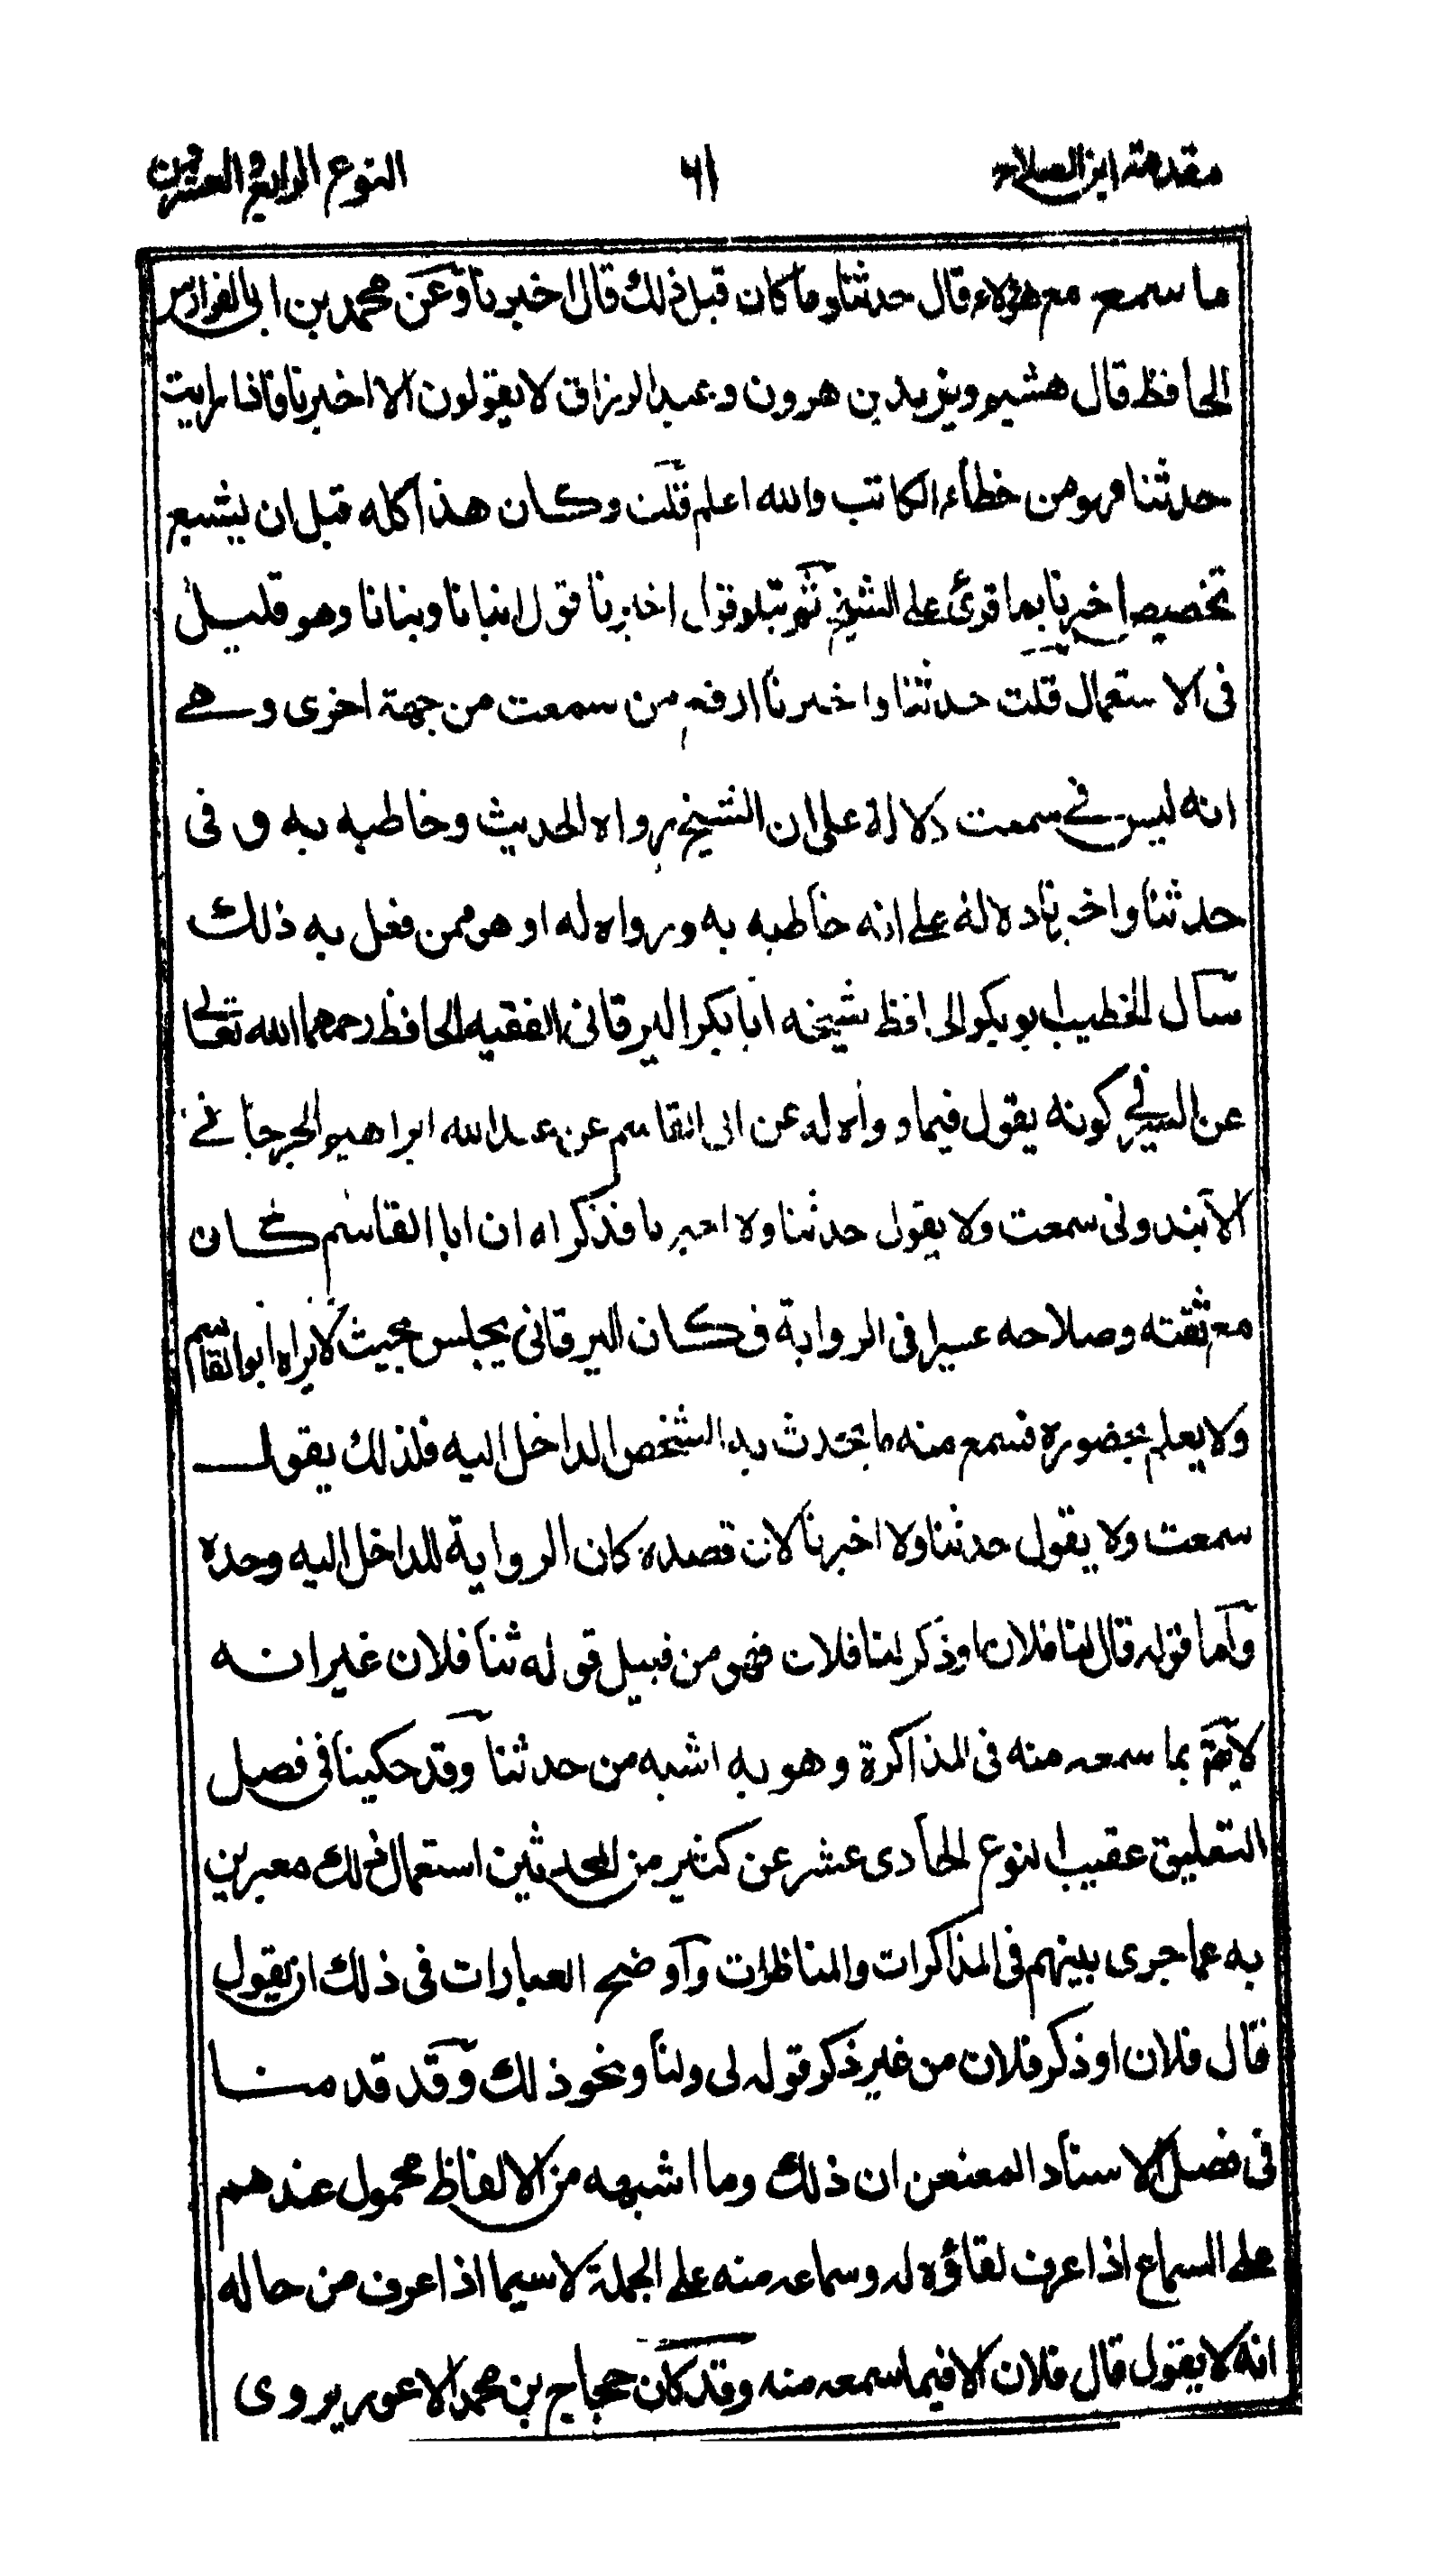 مقدمة ابن الصلاح ٦١ النوع الرابع والعشرون
ما سمع مع هؤلاء قال حدثنا وما كان قبل ذلك قال اخبرنا وعن محمد بن ابى الفوارس
الحافظ قال هشيم ويزيد بن هرون وعبد الرزاق لا يقولون الا اخبرنا فاذا رايت
حدثنا فهو من خطاء الكاتب والله اعلم قلت وكان هذا كله قبل ان يشيع
تخصيص اخبرنا بما قرئ على الشيخ ثم يتلو قول اخبرنا قول انبانا ونبانا وهو قليل
فى الاستعمال قلت حدثنا واخبرنا ارفع من سمعت من جهة اخرى وهے
انه ليس فے سمعت دلالة على ان الشيخ رواه الحديث وخاطبه به و فى
حدثنا واخبرنا دلالة على انه خاطبه به ورواه له او هو ممن فعل به ذلك
سال الخطيب ابو بكر الحافظ شيخه ابا بكر البرقانى الفقيه الحافظ رحمهما الله تعالى
عن السر فے كونه يقول فيما رواه له عن ابى القاسم عن عبد الله ابراهيم الجرجانے
الآبندونى سمعت ولا يقول حدثنا ولا اخبرنا فذكر اه ان ابا القاسم كان
مع ثقته وصلاحه عسيرا فى الرواية فكان البرقانى يجلس بحيث لا يراه ابو القاسم
ولا يعلم بحضوره فسمع منه ما يحدث به الشخص الداخل اليه فلذلك يقول
سمعت ولا يقول حدثنا ولا اخبرنا لان قصده كان الرواية للداخل اليه وحده
واما قوله قال لنا فلان او ذكر لنا فلان فهو من قبيل قوله ثنا فلان غير انه
لايق بما سمعه منه فى المذاكرة وهو به اشبه من حدثنا وقد حكينا فى فصل
التعليق عقيب النوع الحادى عشر عن كثير من المحدثين استعمال ذلك معبرين
به عما جرى بينهم فى المذاكرات والمناظرات واوضح العبارات فى ذلك ان يقول
قال فلان او ذكر فلان من غير ذكر قوله لى ولنا ونحو ذلك وقد قدمنا
فى فصل الاسناد المعنعن ان ذلك وما اشبهه من الالفاظ محمول عندهم
على السماع اذا عرف لقاؤه له وسماعه منه على الجملة لا سيما اذا عرف من حاله
انه لا يقول قال فلان الا فيما سمعه منه وقد كان حجاج بن محمد الاعور يروى